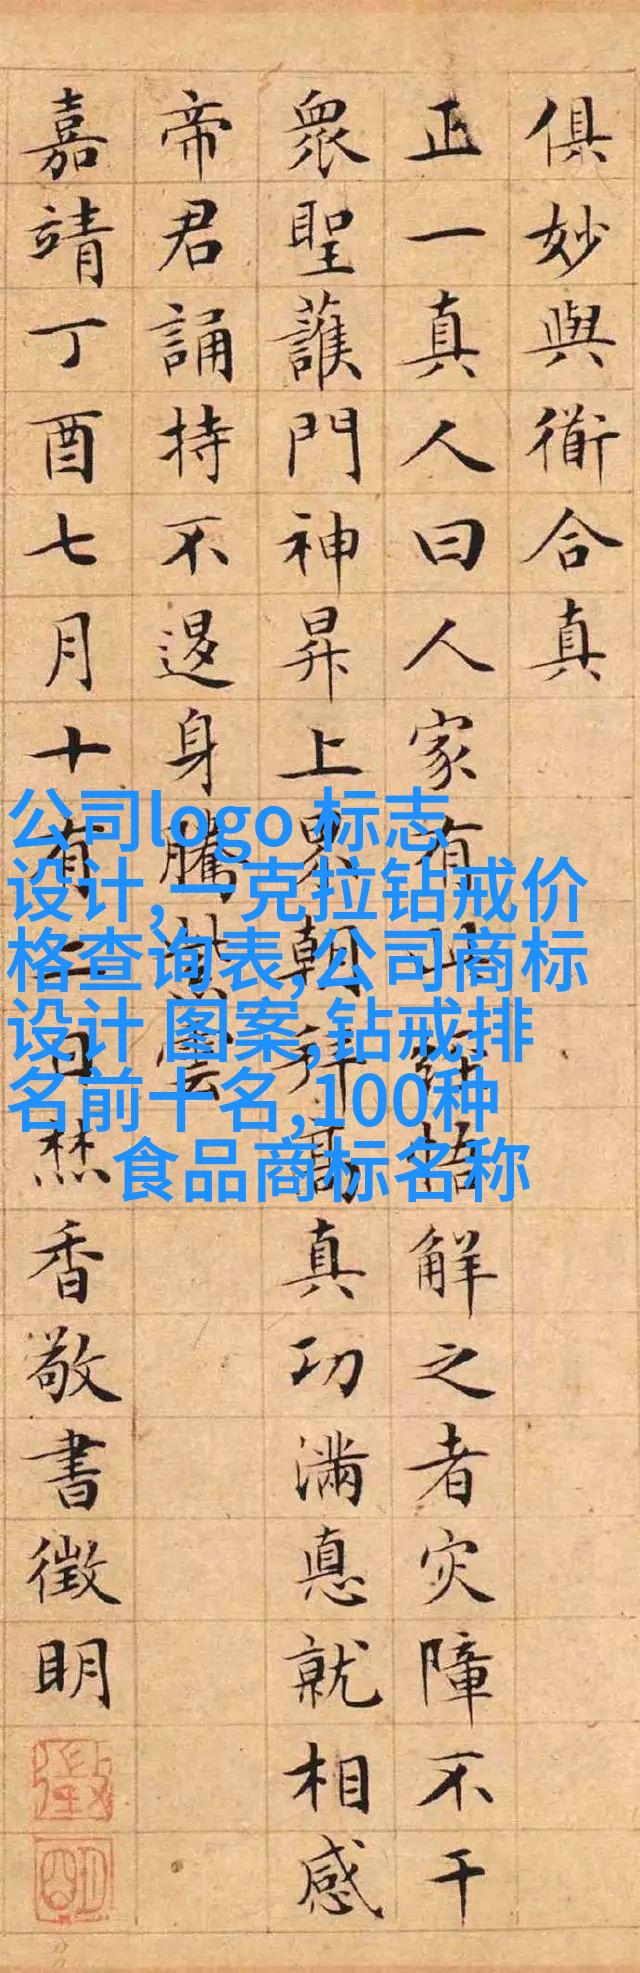 俱妙與衜合真
正一真人曰人家有此經悟解之者灾障不干
眾聖護門神昇上界朝拜高真功滿悳就相感
帝君誦持不退身騰紫雲
嘉靖丁酉七月十有二日焚香敬書徵明
徵明
公司logo 标志
设计,一克拉钻戒价
格查询表,公司商标
设计 图案,钻戒排
名前十名,100种
食品商标名称